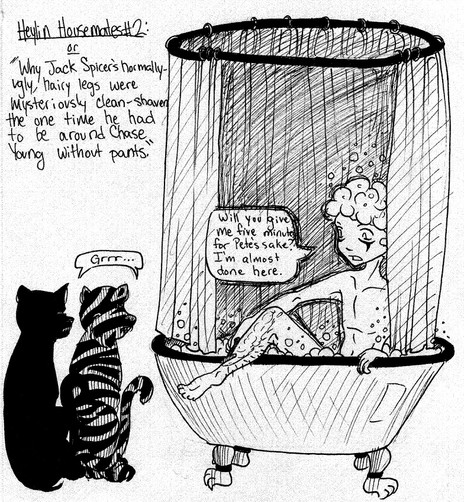 Heylin Housemates #2:
or
"Why Jack Spicer's normally-
ugly, hairy legs were
mysteriously clean-shaven
the one time he had
to be around Chase
Young without pants."
Will you give
me five minutes
for Pete's sake?
I'm almost
done here.
Grrr...